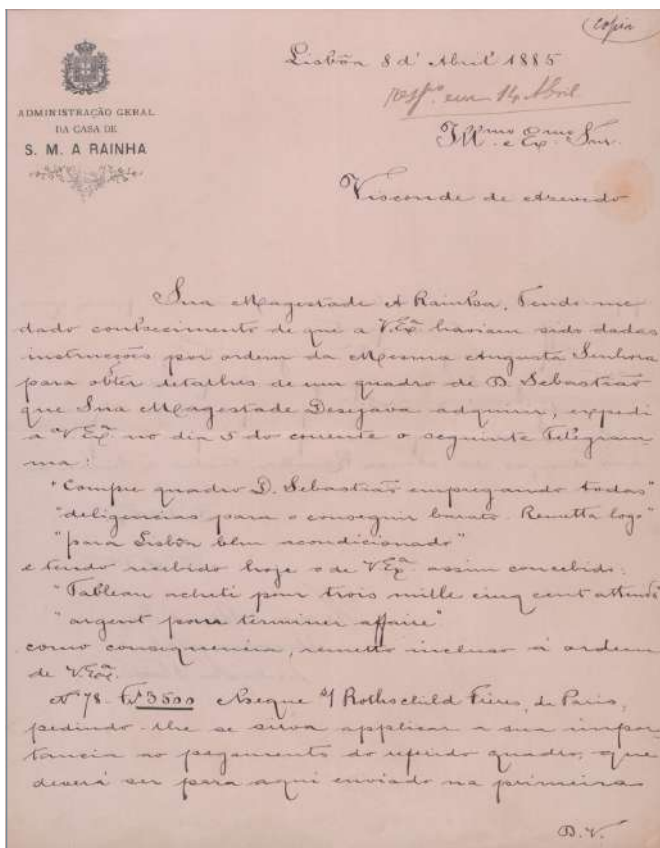 (copia
Lisbôa 8 d'Abril 1885
resp.º em 14 Abril
ADMINISTRAÇÃO GERAL
DA CASA DE
S. M. A RAINHA
Ill.mo e Ex.mo Snr.
Visconde de Azevedo
Sua Magestade A Rainha, Tendo me
dado conhecimento de que a V.Exª haviam sido dadas
instrucções por ordem da Mesma Augusta Senhora
para obter detalhes de um quadro de D. Sebastião
que Sua Magestade Desejava adquirir, expedi
a V.Exª no dia 5 do corrente o seguinte Telegram-
ma:
"Compre quadro D. Sebastião empregando todas"
"deligencias para o conseguir barato. Remetta logo"
"para Lisbôa bem acondicionado"
e tendo recebido hoje o de V.Exª assim concebido:
"Tableau acheti pour trois mille cinq cent attends"
"argent para terminer affaire"
como consequencia, remetto incluso á ordem
de V.Exª
Nº 78. 3500 Cheque s/ Rothschild Frères, de Paris,
pedindo-lhe se sirva applicar a sua impor-
tancia ao pagamento do referido quadro, que
deverá ser para aqui enviado na primeira
D.V.